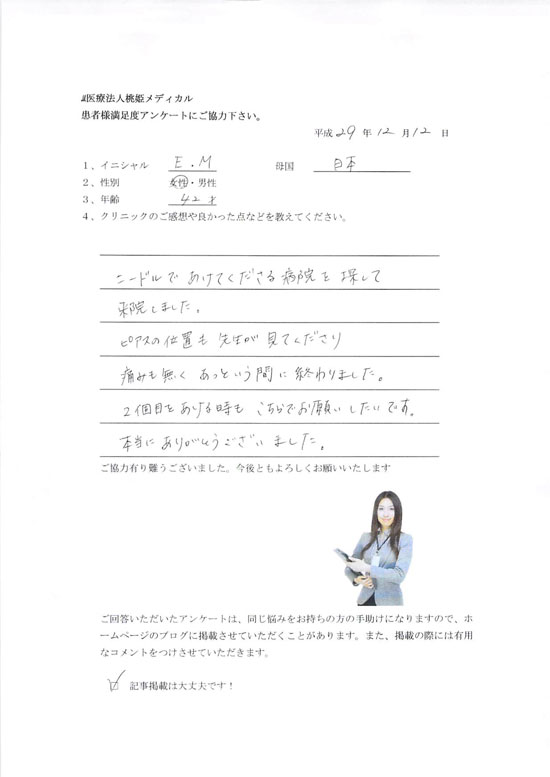 医療法人桃姫メディカル
患者様満足度アンケートにご協力下さい。
平成 29 年 12 月 12 日
1、イニシャル E.M 母国 日本
2、性別 女性・男性
3、年齢 42才
4、クリニックのご感想や良かった点などを教えてください。
ニードルであけてくださる病院を探して
来院しました。
ピアスの位置も先生が見てくださり
痛みも無くあっという間に終わりました。
2個目をあける時もこちらでお願いしたいです。
本当にありがとうございました。
ご協力有り難うございました。今後ともよろしくお願いいたします
ご回答いただいたアンケートは、同じ悩みをお持ちの方の手助けになりますので、ホ
ームページのブログに掲載させていただくことがあります。また、掲載の際には有用
なコメントをつけさせていただきます。
記事掲載は大丈夫です！